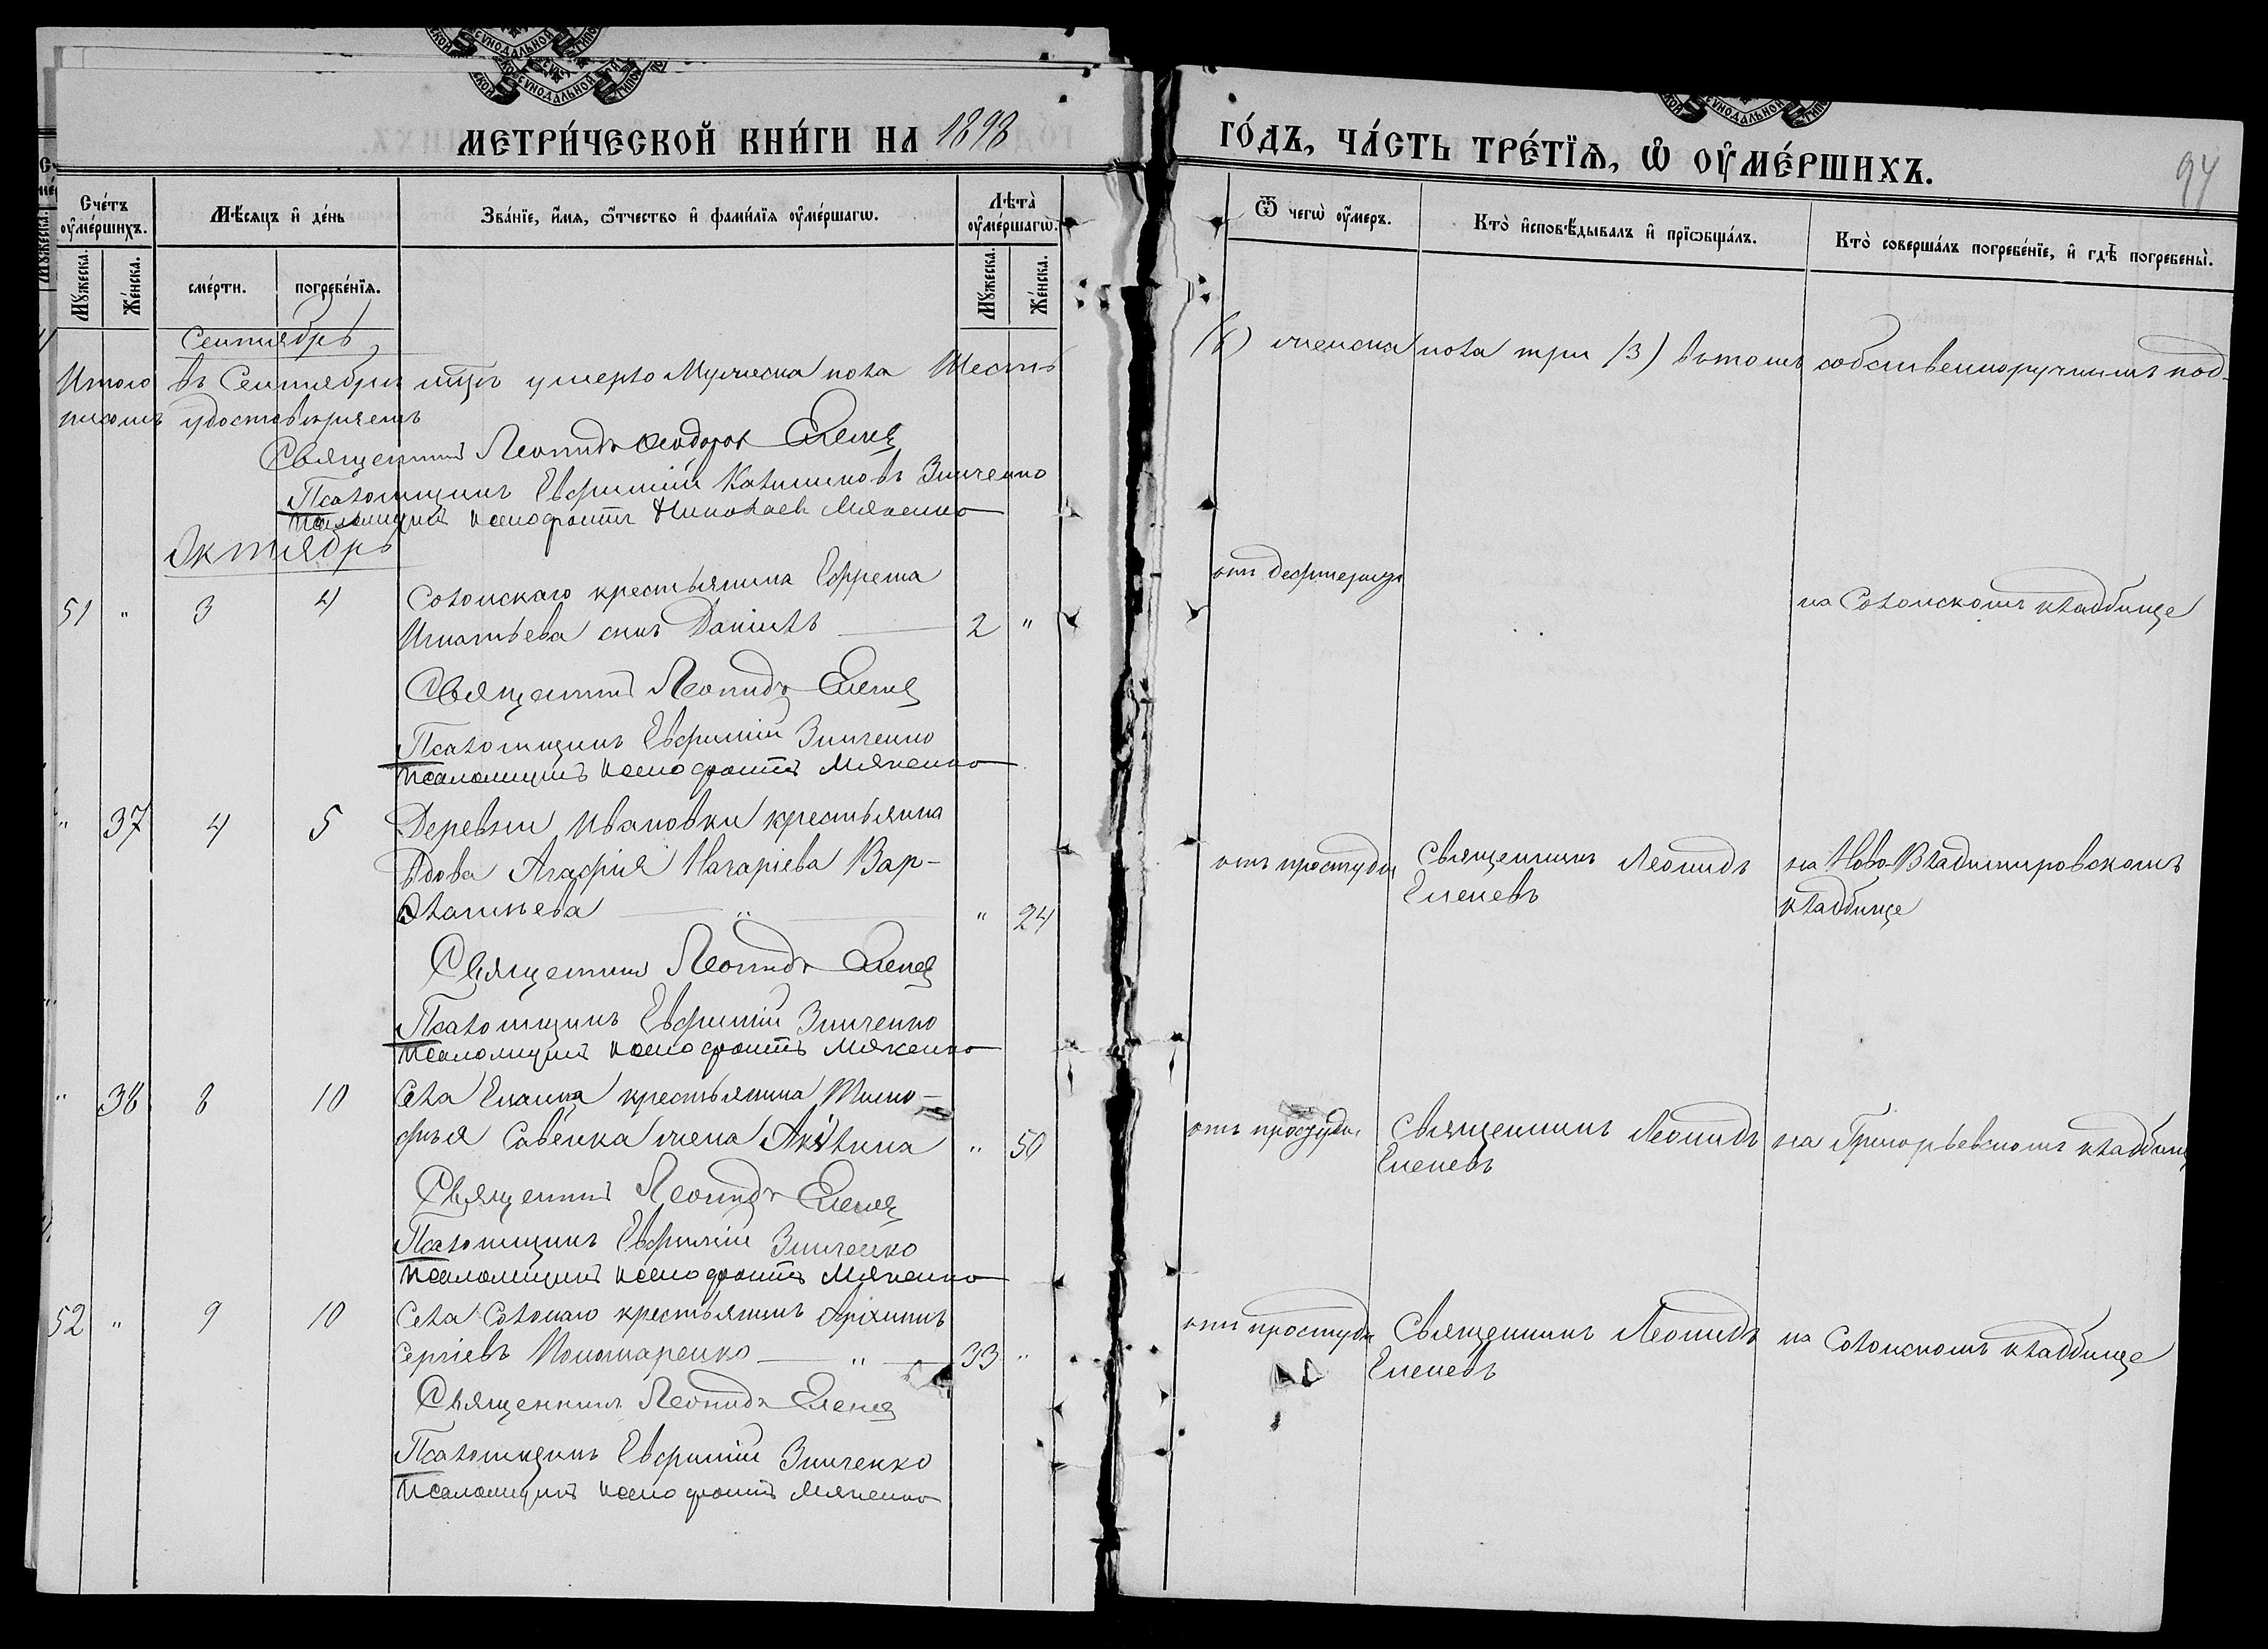 МЕТРИ́ЧЕСКОЙ КНИ́ГИ НА 1898 ГО́ДЪ, ЧА́СТЬ ТРЕ́ТЇѦ, Ѽ ОУМЕ́РШИХЪ.
94
Счетъ оумершихъ.
Мѣсяцъ и день
Званїе, имя, ѿтчество и фамилїя оумершагѡ.
Лѣта оумершагѡ.
Ѿ чегѡ оумеръ.
Кто исповѣдывалъ и прїѡбщалъ.
Кто совершалъ погребенїе, и гдѣ погребены.
Мужеска.
Женска.
смерти.
погребенїя.
Мужеска.
Женска.
Сентябрь
Итого въ Сентябрѣ мцѣ умерло Мужеска пола Шесть (6) женска пола три (3) въ томъ собственноручнымъ под-
писомъ удостовѣряемъ
Священникъ Леонидъ Ѳеодоров Еленев
Псаломщикъ Евфимій Калиниковъ Зинченко
псаломщикъ Ксенофонтъ Николаев Мякенко
Октябрь
51 " 3 4 Солонскаго крестьянина Ефрема
Игнатьева сынъ Даніилъ 2 " отъ дефтерита на Солонскомъ кладбище
Священникъ Леонидъ Еленев
Псаломщикъ Евфимій Зинченко
псаломщикъ Ксенофонтъ Мякенко
" 37 4 5 Деревни Ивановки крестьянка
вдова Агафія Назаріева Вар-
" " 24 отъ простуды Священникъ Леонидъ Еленевъ на Ново-Владимировскомъ кладбище
Священникъ Леонидъ Еленев
Псаломщикъ Евфимій Зинченко
псаломщикъ Ксенофонтъ Мякенко
" 38 8 10 Села Еланца крестьянина Тимо-
фея Савенка жена Акилина " 50 отъ простуды Священникъ Леонидъ Еленевъ на Григорьевскомъ кладбищ
Священникъ Леонидъ Еленев
Псаломщикъ Евфимій Зинченко
псаломщикъ Ксенофонтъ Мякенко
52 " 9 10 Села Солонаго крестьянинъ Архипъ
Сергіевъ Пономаренко " 33 " отъ простуды Священникъ Леонидъ Еленевъ на Солонскомъ кладбище
Священникъ Леонидъ Еленев
Псаломщикъ Евфимій Зинченко
псаломщикъ Ксенофонтъ Мякенко